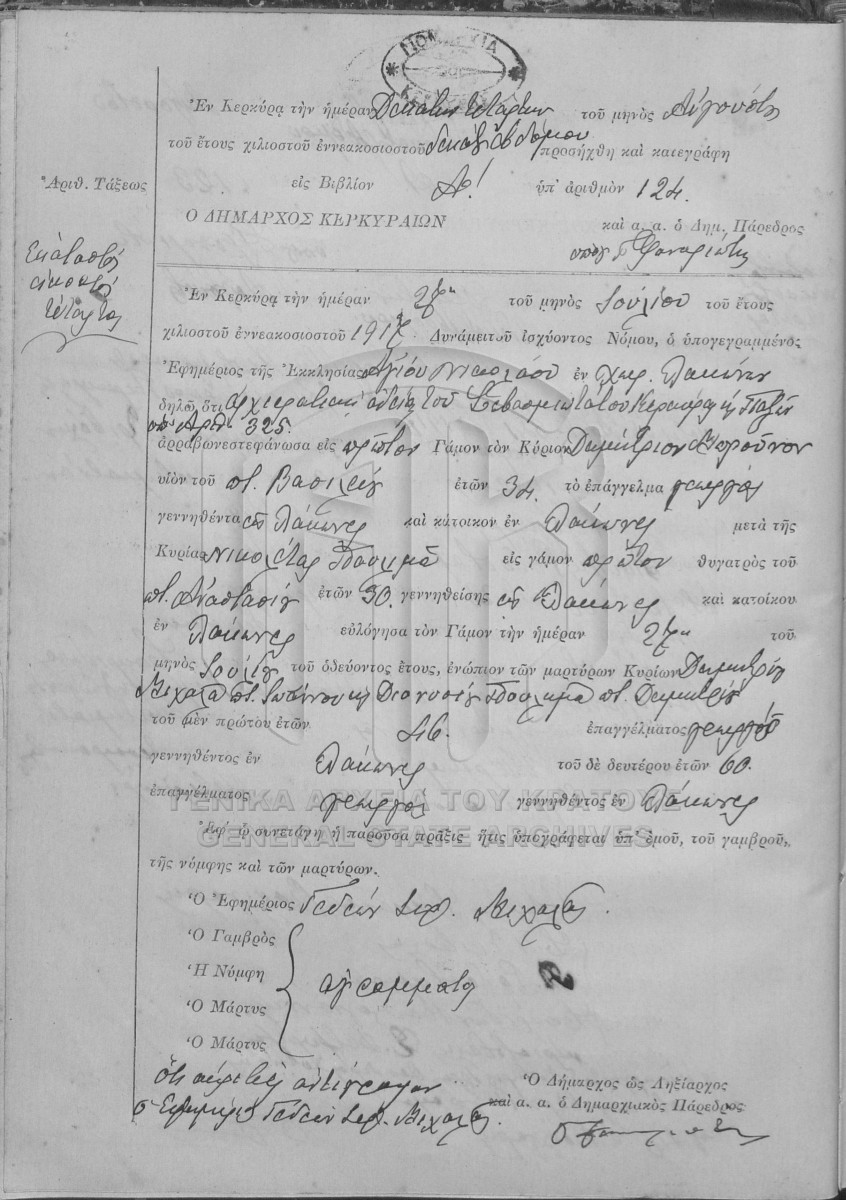 ΝΟΜΑΡΧΙΑ
Ἐν Κερκύρᾳ τὴν ἡμέραν Δεκάτην τετάρτην τοῦ μηνὸς Αὐγούστου
τοῦ ἔτους χιλιοστοῦ ἐννεακοσιοστοῦ δεκάτου ἑβδόμου προσήχθη καὶ κατεγράφη
Ἀριθ. Τάξεως
εἰς Βιβλίον Α! ὑπ' ἀριθμὸν 124.
Ο ΔΗΜΑΡΧΟΣ ΚΕΡΚΥΡΑΙΩΝ
καὶ α. α. ὁ Δημ. Πάρεδρος
Ἑκατοστὴ
εἰκοστὴ
τετάρτη
Ἐν Κερκύρᾳ τὴν ἡμέραν τοῦ μηνὸς Ἰουλίου τοῦ ἔτους
χιλιοστοῦ ἐννεακοσιοστοῦ 1917 Δυνάμει τοῦ ἰσχύοντος Νόμου, ὁ ὑπογεγραμμένος
Ἐφημέριος τῆς Ἐκκλησίας Ἁγίου Νικολάου ἐν χωρ. Λάκωνες
δηλῶ ὅτι ἀρχιερατικῇ ἀδείᾳ τοῦ Σεβασμιωτάτου Κερκύρας κ Παξῶν
ὑπ' ἀριθ. 325.
ἀρραβωνεστεφάνωσα εἰς πρῶτον Γάμον τὸν Κύριον Δημήτριον
υἱὸν τοῦ ποτ. Βασιλείου ἐτῶν 34. τὸ ἐπάγγελμα γεωργὸς
γεννηθέντα εἰς Λάκωνες καὶ κάτοικον ἐν Λάκωνες μετὰ τῆς
Κυρίας Νικολέτας Βουλγμᾶ εἰς γάμον πρῶτον θυγατρὸς τοῦ
ποτ. Ἀναστασίου ἐτῶν 30. γεννηθείσης εἰς Λάκωνες καὶ κατοίκου
ἐν Λάκωνες εὐλόγησα τὸν Γάμον τὴν ἡμέραν τοῦ
μηνὸς Ἰουλίου τοῦ ὁδεύοντος ἔτους, ἐνώπιον τῶν μαρτύρων Κυρίων Δημητρίου
Μιχαλᾶ ποτ. κ Διονυσίου ποτ. Δημητρίου
τοῦ μὲν πρώτου ἐτῶν 46. ἐπαγγέλματος γεωργοῦ
γεννηθέντος ἐν Λάκωνες τοῦ δὲ δευτέρου ἐτῶν 60.
ἐπαγγέλματος γεωργὸς γεννηθέντος ἐν Λάκωνες
ΓΕΝΙΚΑ ΑΡΧΕΙΑ ΤΟΥ ΚΡΑΤΟΥΣ
GENERAL STATE ARCHIVES
Ἐφ' ᾧ συνετάγη ἡ παροῦσα πρᾶξις ἥτις ὑπογράφεται ὑπ' ἐμοῦ, τοῦ γαμβροῦ,
τῆς νύμφης καὶ τῶν μαρτύρων.
Ὁ Ἐφημέριος Γεδεὼν Μιχαλᾶς.
Ὁ Γαμβρὸς
Ἡ Νύμφη
ἀγράμματοι
Ὁ Μάρτυς
Ὁ Μάρτυς
Ὅτι ἀκριβὲς ἀντίγραφον
ὁ Ἐφημέριος Γεδεὼν Μιχαλᾶς.
Ὁ Δήμαρχος ὡς Ληξίαρχος
καὶ α. α. ὁ Δημαρχιακὸς Πάρεδρος